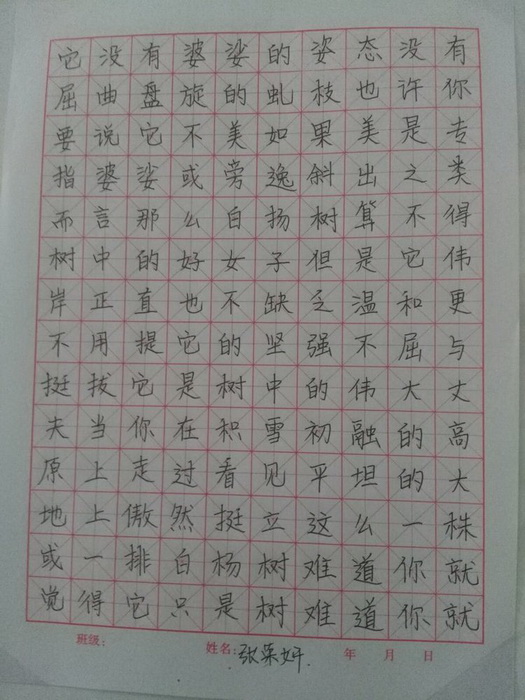 它没有婆娑的姿态没有
屈曲盘旋的虬枝也许你
要说它不美如果美是专
指婆娑或旁逸斜出之类
而言那么白扬树算不得
树中的好女子但是它伟
岸正直也不缺乏温和更
不用提它的坚强不屈与
挺拔它是树中的伟大丈
夫当你在积雪初融的高
原上走过看见平坦的大
地上傲然挺立这么一株
或一排白杨树难道你就
觉得它只是树难道你就
班级: 姓名: 年 月 日